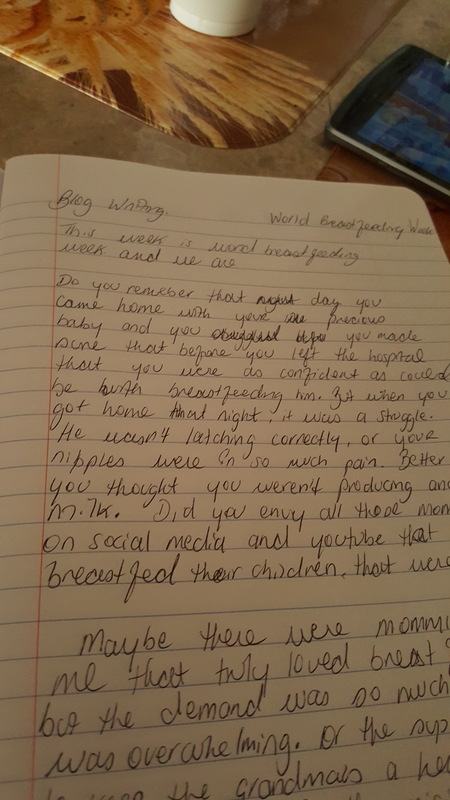 Blog Writing.
World Breastfeeding Week
This week is world breastfeeding
week and we are
Do you remember that day you
came home with your precious
baby and you made
sure that before you left the hospital
that you were as confident as could
be with breastfeeding him. But when you
got home that night, it was a struggle.
He wasn't latching correctly, or your
nipples were in so much pain. Better
you thought you weren't producing
milk. Did you envy all those mom
on social media and youtube that
breastfeed their children. that were
Maybe there were mommi
me that truly loved breast
but the demand was so much
was overwhelming. Or the sup
the grandma's a he